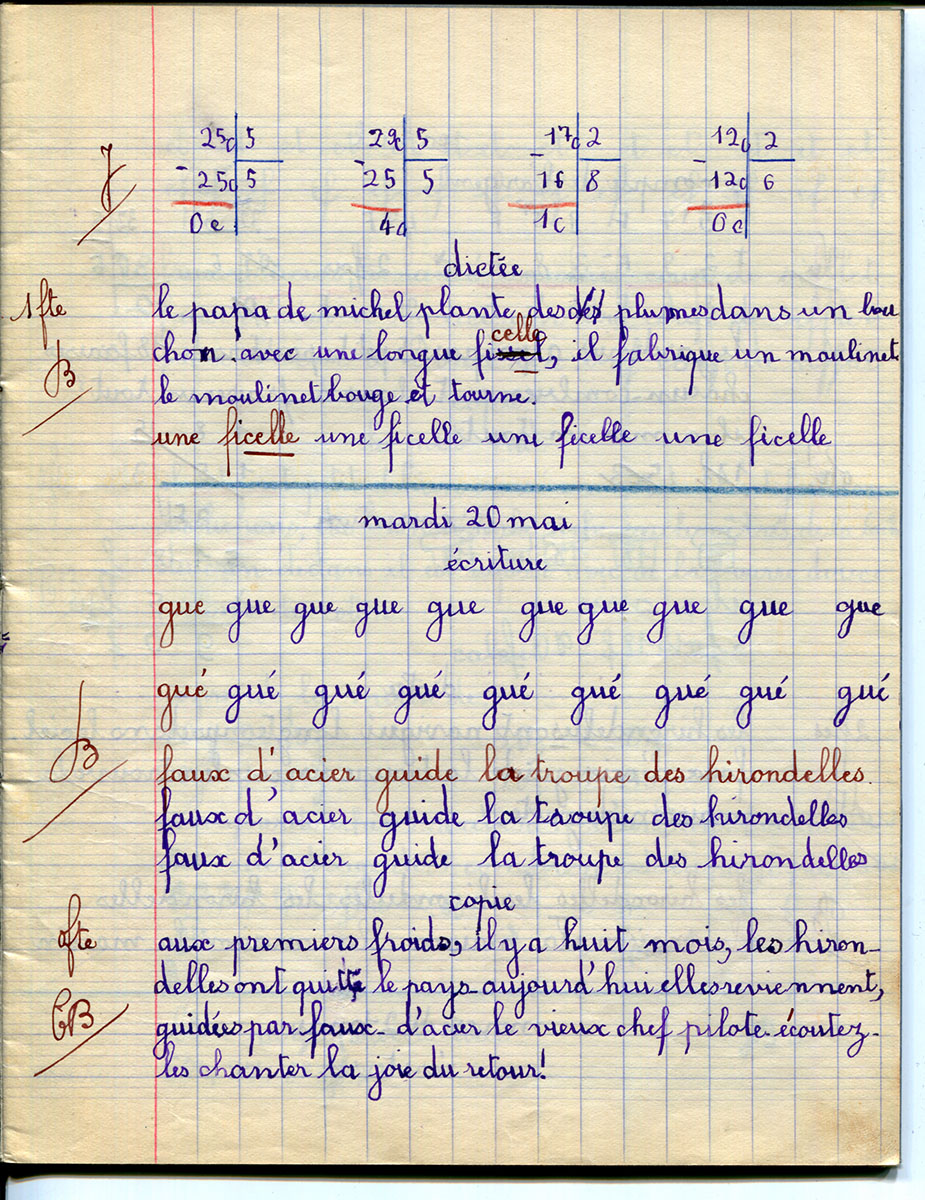 25c 5 29c 5 17c 2 12c 2
-25c 5 -25 5 -16 8 -12c 6
0c 4c 1c 0c
J
dictée
1 fte
le papa de michel plante des plumes dans un bou
chon. avec une longue ficelle, il fabrique un moulinet
B
le moulinet bouge et tourne.
une ficelle une ficelle une ficelle une ficelle
mardi 20 mai
écriture
gue gue gue gue gue gue gue gue gue gue
gué gué gué gué gué gué gué gué gué
B
faux d'acier guide la troupe des hirondelles.
faux d'acier guide la troupe des hirondelles
faux d'acier guide la troupe des hirondelles
copie
0fte
aux premiers froids, il y a huit mois, les hiron-
delles ont quitté le pays aujourd'hui elles reviennent,
TB
guidées par faux-d'acier le vieux chef pilote. écoutez-
les chanter la joie du retour!